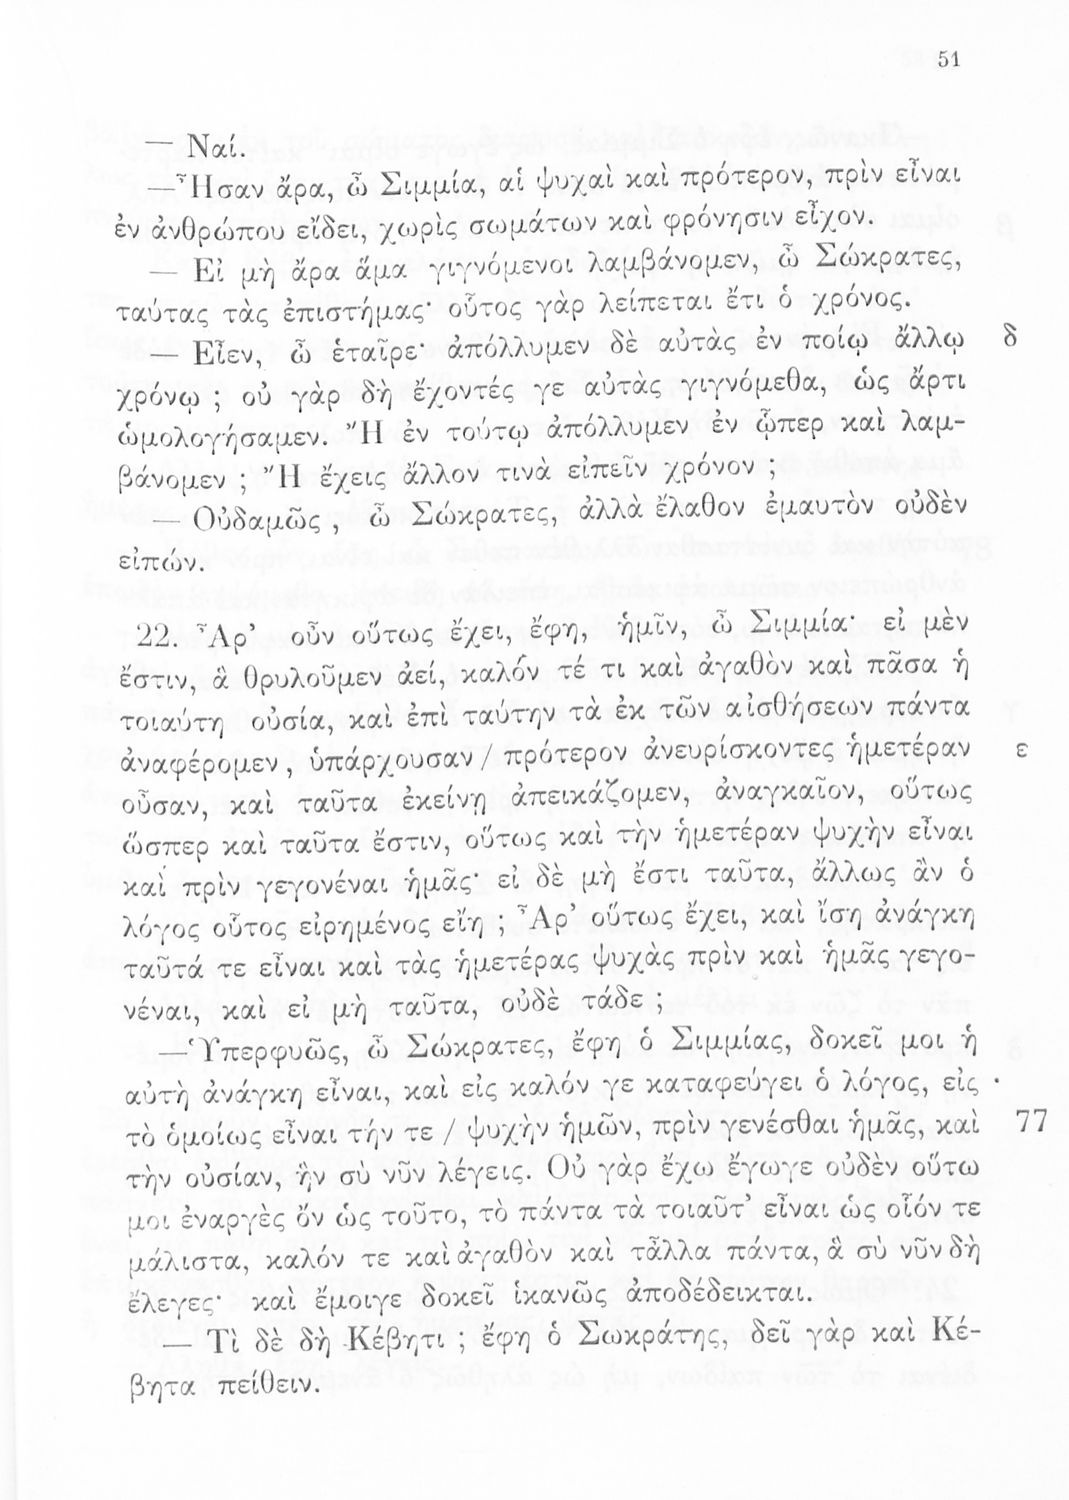 51
— Ναί.
— Ἦσαν ἄρα, ὦ Σιμμία, αἱ ψυχαὶ καὶ πρότερον, πρὶν εἶναι
ἐν ἀνθρώπου εἴδει, χωρὶς σωμάτων καὶ φρόνησιν εἶχον.
— Εἰ μὴ ἄρα ἅμα γιγνόμενοι λαμβάνομεν, ὦ Σώκρατες,
ταύτας τὰς ἐπιστήμας· οὗτος γὰρ λείπεται ἔτι ὁ χρόνος.
— Εἶεν, ὦ ἑταῖρε· ἀπόλλυμεν δὲ αὐτὰς ἐν ποίῳ ἄλλῳ δ
χρόνῳ ; οὐ γὰρ δὴ ἔχοντές γε αὐτὰς γιγνόμεθα, ὡς ἄρτι
ὡμολογήσαμεν. Ἢ ἐν τούτῳ ἀπόλλυμεν ἐν ᾧπερ καὶ λαμ-
βάνομεν ; Ἢ ἔχεις ἄλλον τινὰ εἰπεῖν χρόνον ;
— Οὐδαμῶς, ὦ Σώκρατες, ἀλλὰ ἔλαθον ἐμαυτὸν οὐδὲν
εἰπών.
22. Ἆρ’ οὖν οὕτως ἔχει, ἔφη, ἡμῖν, ὦ Σιμμία· εἰ μὲν
ἔστιν, ἃ θρυλοῦμεν ἀεί, καλόν τέ τι καὶ ἀγαθὸν καὶ πᾶσα ἡ
τοιαύτη οὐσία, καὶ ἐπὶ ταύτην τὰ ἐκ τῶν αἰσθήσεων πάντα
ἀναφέρομεν, ὑπάρχουσαν / πρότερον ἀνευρίσκοντες ἡμετέραν ε
οὖσαν, καὶ ταῦτα ἐκείνῃ ἀπεικάζομεν, ἀναγκαῖον, οὕτως
ὥσπερ καὶ ταῦτα ἔστιν, οὕτως καὶ τὴν ἡμετέραν ψυχὴν εἶναι
καὶ πρὶν γεγονέναι ἡμᾶς· εἰ δὲ μὴ ἔστι ταῦτα, ἄλλως ἂν ὁ
λόγος οὗτος εἰρημένος εἴη ; Ἆρ’ οὕτως ἔχει, καὶ ἴση ἀνάγκη
ταῦτά τε εἶναι καὶ τὰς ἡμετέρας ψυχὰς πρὶν καὶ ἡμᾶς γεγο-
νέναι, καὶ εἰ μὴ ταῦτα, οὐδὲ τάδε ;
— Ὑπερφυῶς, ὦ Σώκρατες, ἔφη ὁ Σιμμίας, δοκεῖ μοι ἡ
αὐτὴ ἀνάγκη εἶναι, καὶ εἰς καλόν γε καταφεύγει ὁ λόγος, εἰς
τὸ ὁμοίως εἶναι τήν τε / ψυχὴν ἡμῶν, πρὶν γενέσθαι ἡμᾶς, καὶ 77
τὴν οὐσίαν, ἣν σὺ νῦν λέγεις. Οὐ γὰρ ἔχω ἔγωγε οὐδὲν οὕτω
μοι ἐναργὲς ὂν ὡς τοῦτο, τὸ πάντα τὰ τοιαῦτ’ εἶναι ὡς οἷόν τε
μάλιστα, καλόν τε καὶ ἀγαθὸν καὶ τἆλλα πάντα, ἃ σὺ νῦν δὴ
ἔλεγες· καὶ ἔμοιγε δοκεῖ ἱκανῶς ἀποδέδεικται.
— Τὶ δὲ δὴ Κέβητι ; ἔφη ὁ Σωκράτης, δεῖ γὰρ καὶ Κέ-
βητα πείθειν.